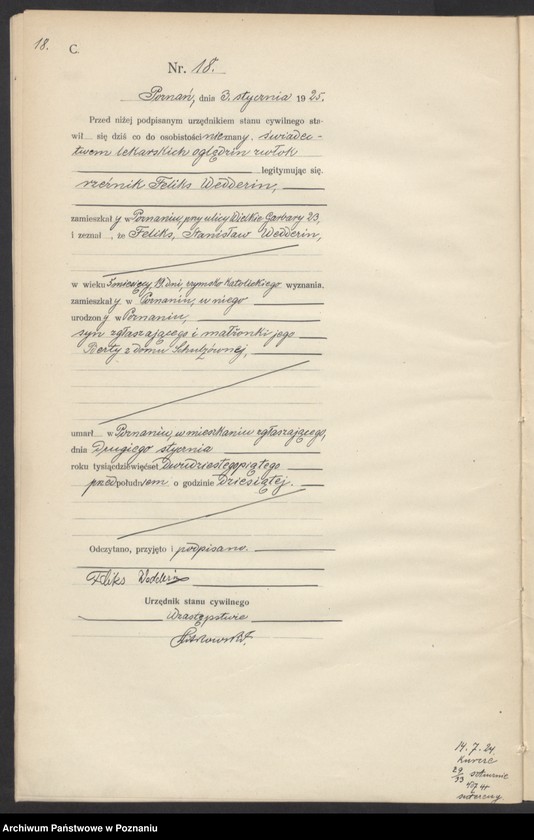 18.
C.
Nr. 18.
Poznań, dnia 3. stycznia 1925.
Przed niżej podpisanym urzędnikiem stanu cywilnego sta-
wił się dziś co do osobistości nieznany, świadec-
twem lekarskich oględzin zwłok
legitymując się.
rzeźnik Feliks Wedderin,
zamieszkały w Poznaniu, przy ulicy Wielkie Garbary 23,
i zeznał, że Feliks, Stanisław Wedderin,
w wieku 5 miesięcy, 19 dni, rzymsko katolickiego wyznania.
zamieszkały w Poznaniu, u niego
urodzony w Poznaniu,
syn zgłaszającego i małżonki jego
Berty z domu Schulzównej,
umarł w Poznaniu, w mieszkaniu zgłaszającego,
dnia Drugiego stycznia
roku tysiącdziewięćset Dwudziestegopiątego
przed południem o godzinie Dziesiątej.
Odczytano, przyjęto i podpisano.
Feliks Wedderin
Urzędnik stanu cywilnego
W zastępstwie
14. 7. 24.
29
33
Archiwum Państwowe w Poznaniu